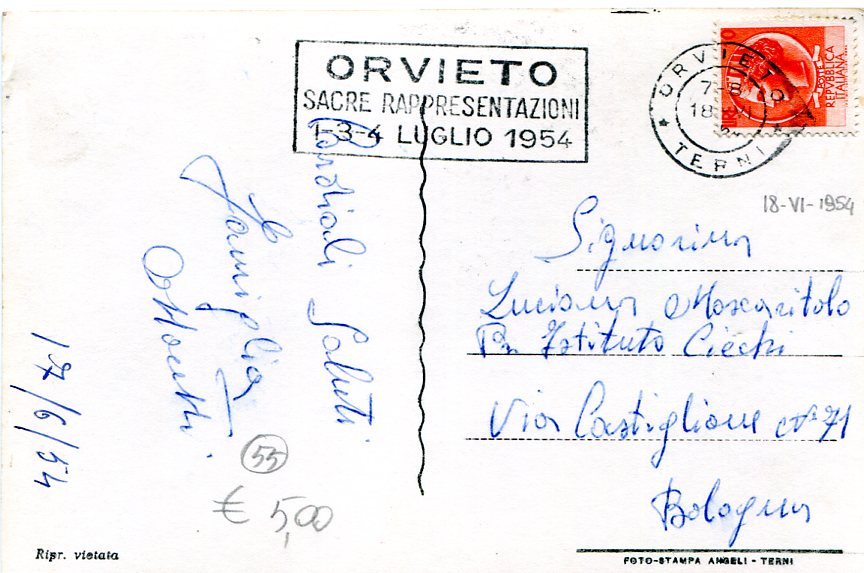 ORVIETO
SACRE RAPPRESENTAZIONI
1-3-4 LUGLIO 1954
ORVIETO
7-8
18
TERNI
POSTE
REPVBBLICA
ITALIANA
18-VI-1954
Cordiali Saluti
Famiglia
17/6/54
55
€ 5,00
Signorina
Luciana Moscaritolo
Istituto Ciechi
Via Castiglione N° 71
Bologna
Ripr. vietata
FOTO-STAMPA ANGELI - TERNI